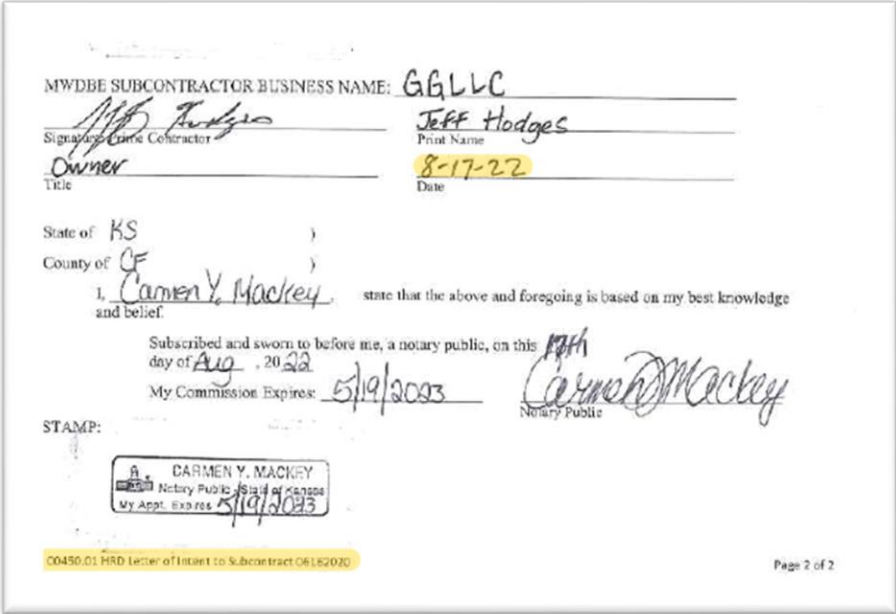 MWDBE SUBCONTRACTOR BUSINESS NAME: GGLLC
Jeff Hodges
Signature Prime Contractor Print Name
Owner 8-17-22
Title Date
State of KS )
County of CF )
I, Carmen Y. Mackey, state that the above and foregoing is based on my best knowledge
and belief.
Subscribed and sworn to before me, a notary public, on this 17th
day of Aug, 2022
My Commission Expires: 5/19/2023 Carmen Y Mackey
Notary Public
STAMP:
CARMEN Y. MACKEY
Notary Public State of Kansas
My Appt. Expires 5/19/2023
00450.01 HRD Letter of Intent to Subcontract 06162020 Page 2 of 2